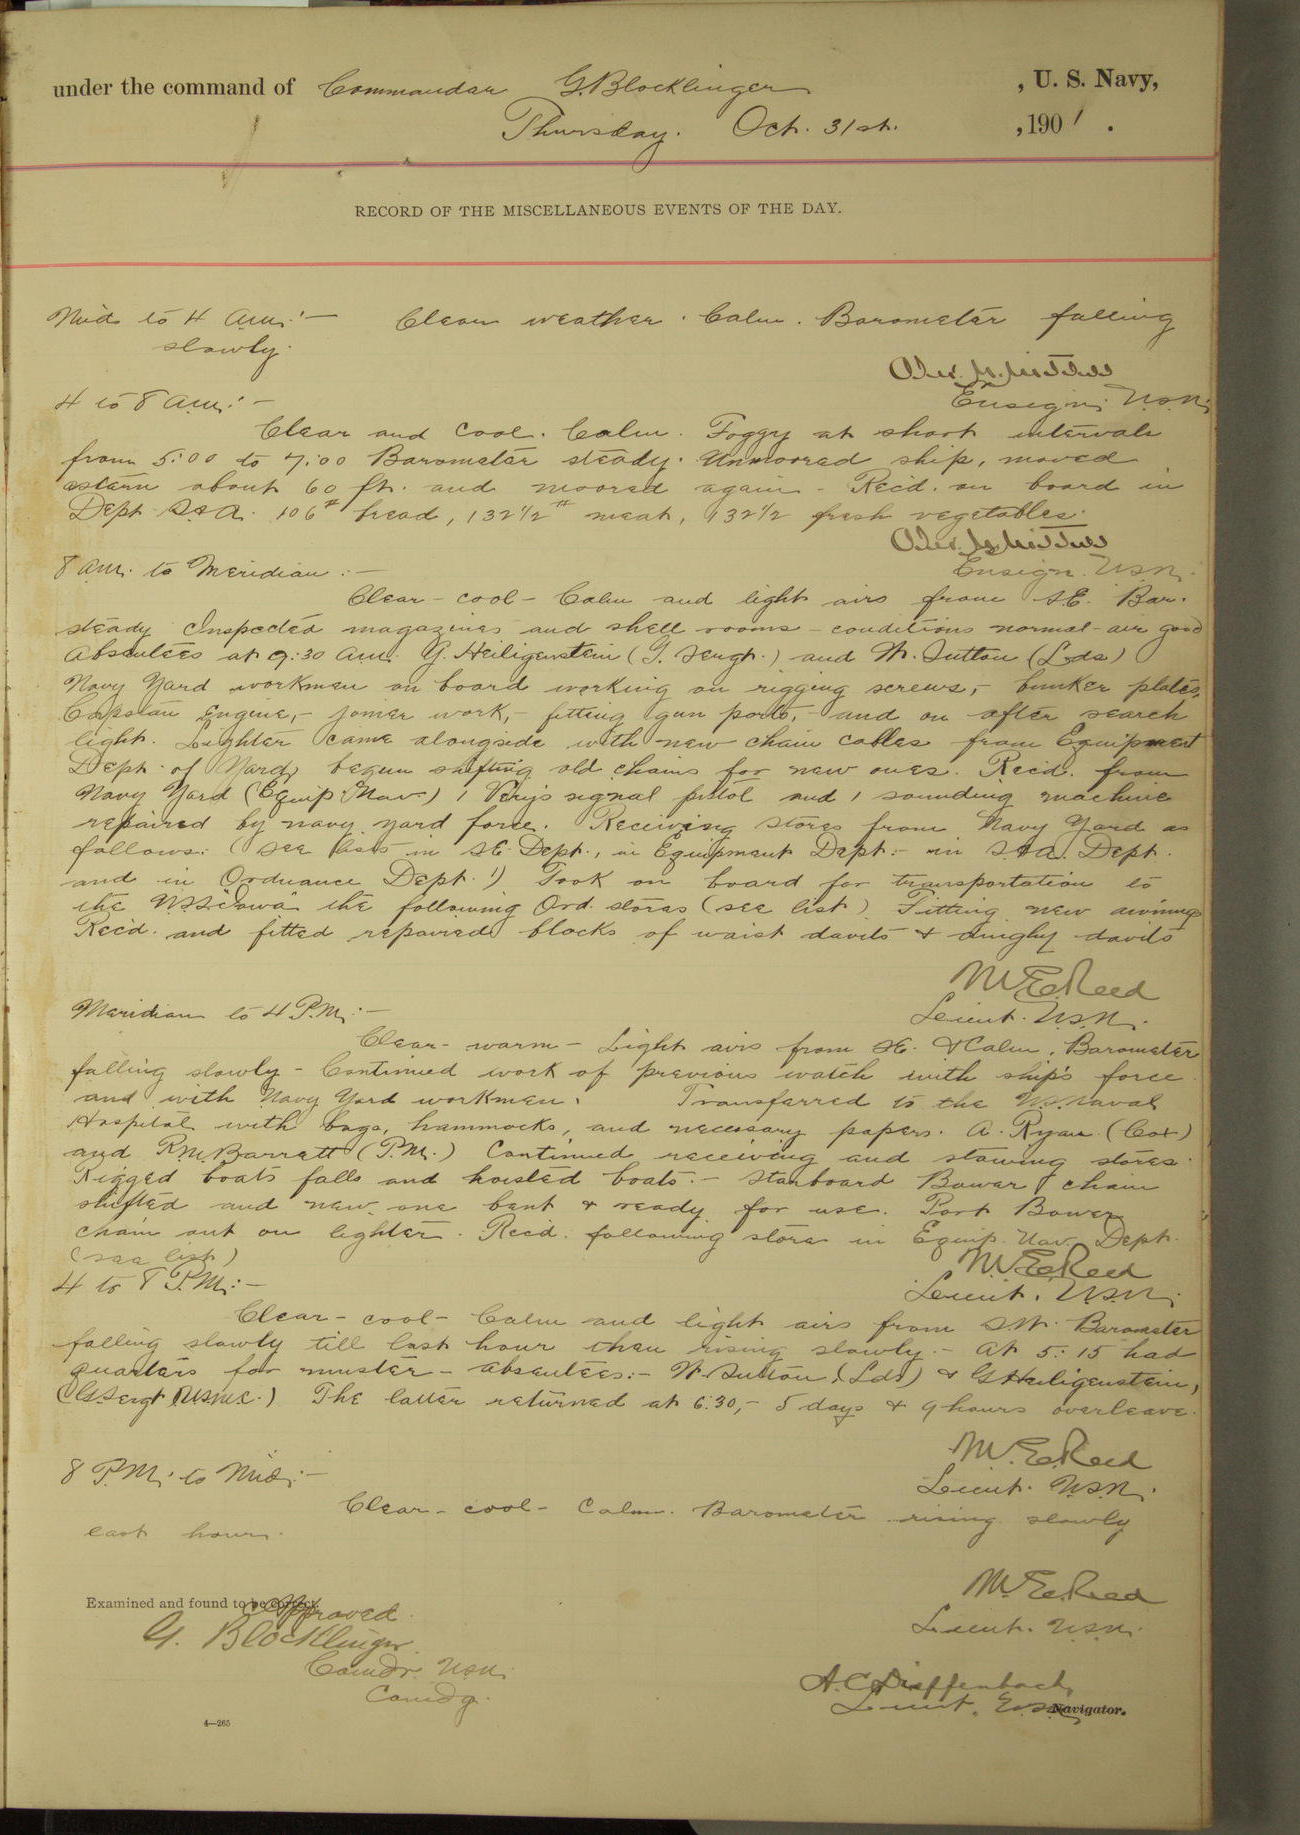 under the command of Commander G. Blocklinger, U. S. Navy,
Thursday. Oct. 31st. , 1901.
RECORD OF THE MISCELLANEOUS EVENTS OF THE DAY.
Mid to 4 a.m.:— Clear weather. Calm. Barometer falling
slowly.
Ensign, U.S.N.
4 to 8 a.m.:—
Clear and cool. Calm. Foggy at short intervals
from 5:00 to 7:00 Barometer steady. Unmoored ship, moved
astern about 60 ft. and moored again - Rec'd. on board in
Dept. S & A. 106# bread, 132 1/2# meat, 132 1/2 fresh vegetables.
Ensign. U.S.N.
8 a.m. to Meridian:—
Clear - cool - Calm and light airs from SE. Bar.
steady Inspected magazines and shell rooms - conditions normal - air good
Absentees at 9:30 a.m. G. Heiligenstein (G. Sergt.) and W. Sutton (Lds)
Navy Yard workmen on board working on rigging screws, - bunker plates,
Capstan Engine, - joiner work, - fitting gun ports, - and on after search
light. Lighter came alongside with new chain cables from Equipment
Dept. of Yard, begun shifting old chains for new ones. Rec'd. from
Navy Yard (Equip. Nav.) 1 Very's signal pistol and 1 sounding machine
repaired by navy yard force. Receiving stores from Navy Yard as
follows: (see lists in SE. Dept., in Equipment Dept. - in S & A. Dept.
and in Ordnance Dept. !) Took on board for transportation to
the U.S.S. Iowa the following Ord. stores (see list) Fitting new awnings
Rec'd. and fitted repaired blocks of waist davits & dinghy davits
M. E. Reed
Lieut. U.S.N.
Meridian to 4 P.M.:—
Clear - warm - Light airs from SE. & Calm. Barometer
falling slowly - Continued work of previous watch with ship's force
and with Navy Yard workmen. Transferred to the U.S. Naval
Hospital with bags, hammocks, and necessary papers. A. Ryan (Cox)
and R.M. Barrett (P.M.) Continued receiving and stowing stores.
Rigged boats falls and hoisted boats. - Starboard Bower chain
shifted and new one bent & ready for use. Port Bower
chain out on lighter. Rec'd. following stores in Equip. Nav. Dept.
(see list)
M. E. Reed
4 to 8 P.M.:—
Lieut. U.S.N.
Clear - cool - Calm and light airs from SW. Barometer
falling slowly till last hour then rising slowly. - At 5:15 had
quarters for muster - absentees: - W. Sutton, (Lds) & G Heiligenstein,
(G. Sergt USMC.) The latter returned at 6:30, - 5 days & 9 hours overleave.
M. E. Reed
8 P.M. to Mid:—
Lieut. U.S.N.
Clear - cool - Calm. Barometer rising slowly
last hour.
M. E. Reed
Lieut. U.S.N.
Examined and found to be correct.
Approved.
G. Blocklinger
Comdr. U.S.N.
Comdg.
A. C. Dieffenbach
Lieut. U.S.N. Navigator.
4—265